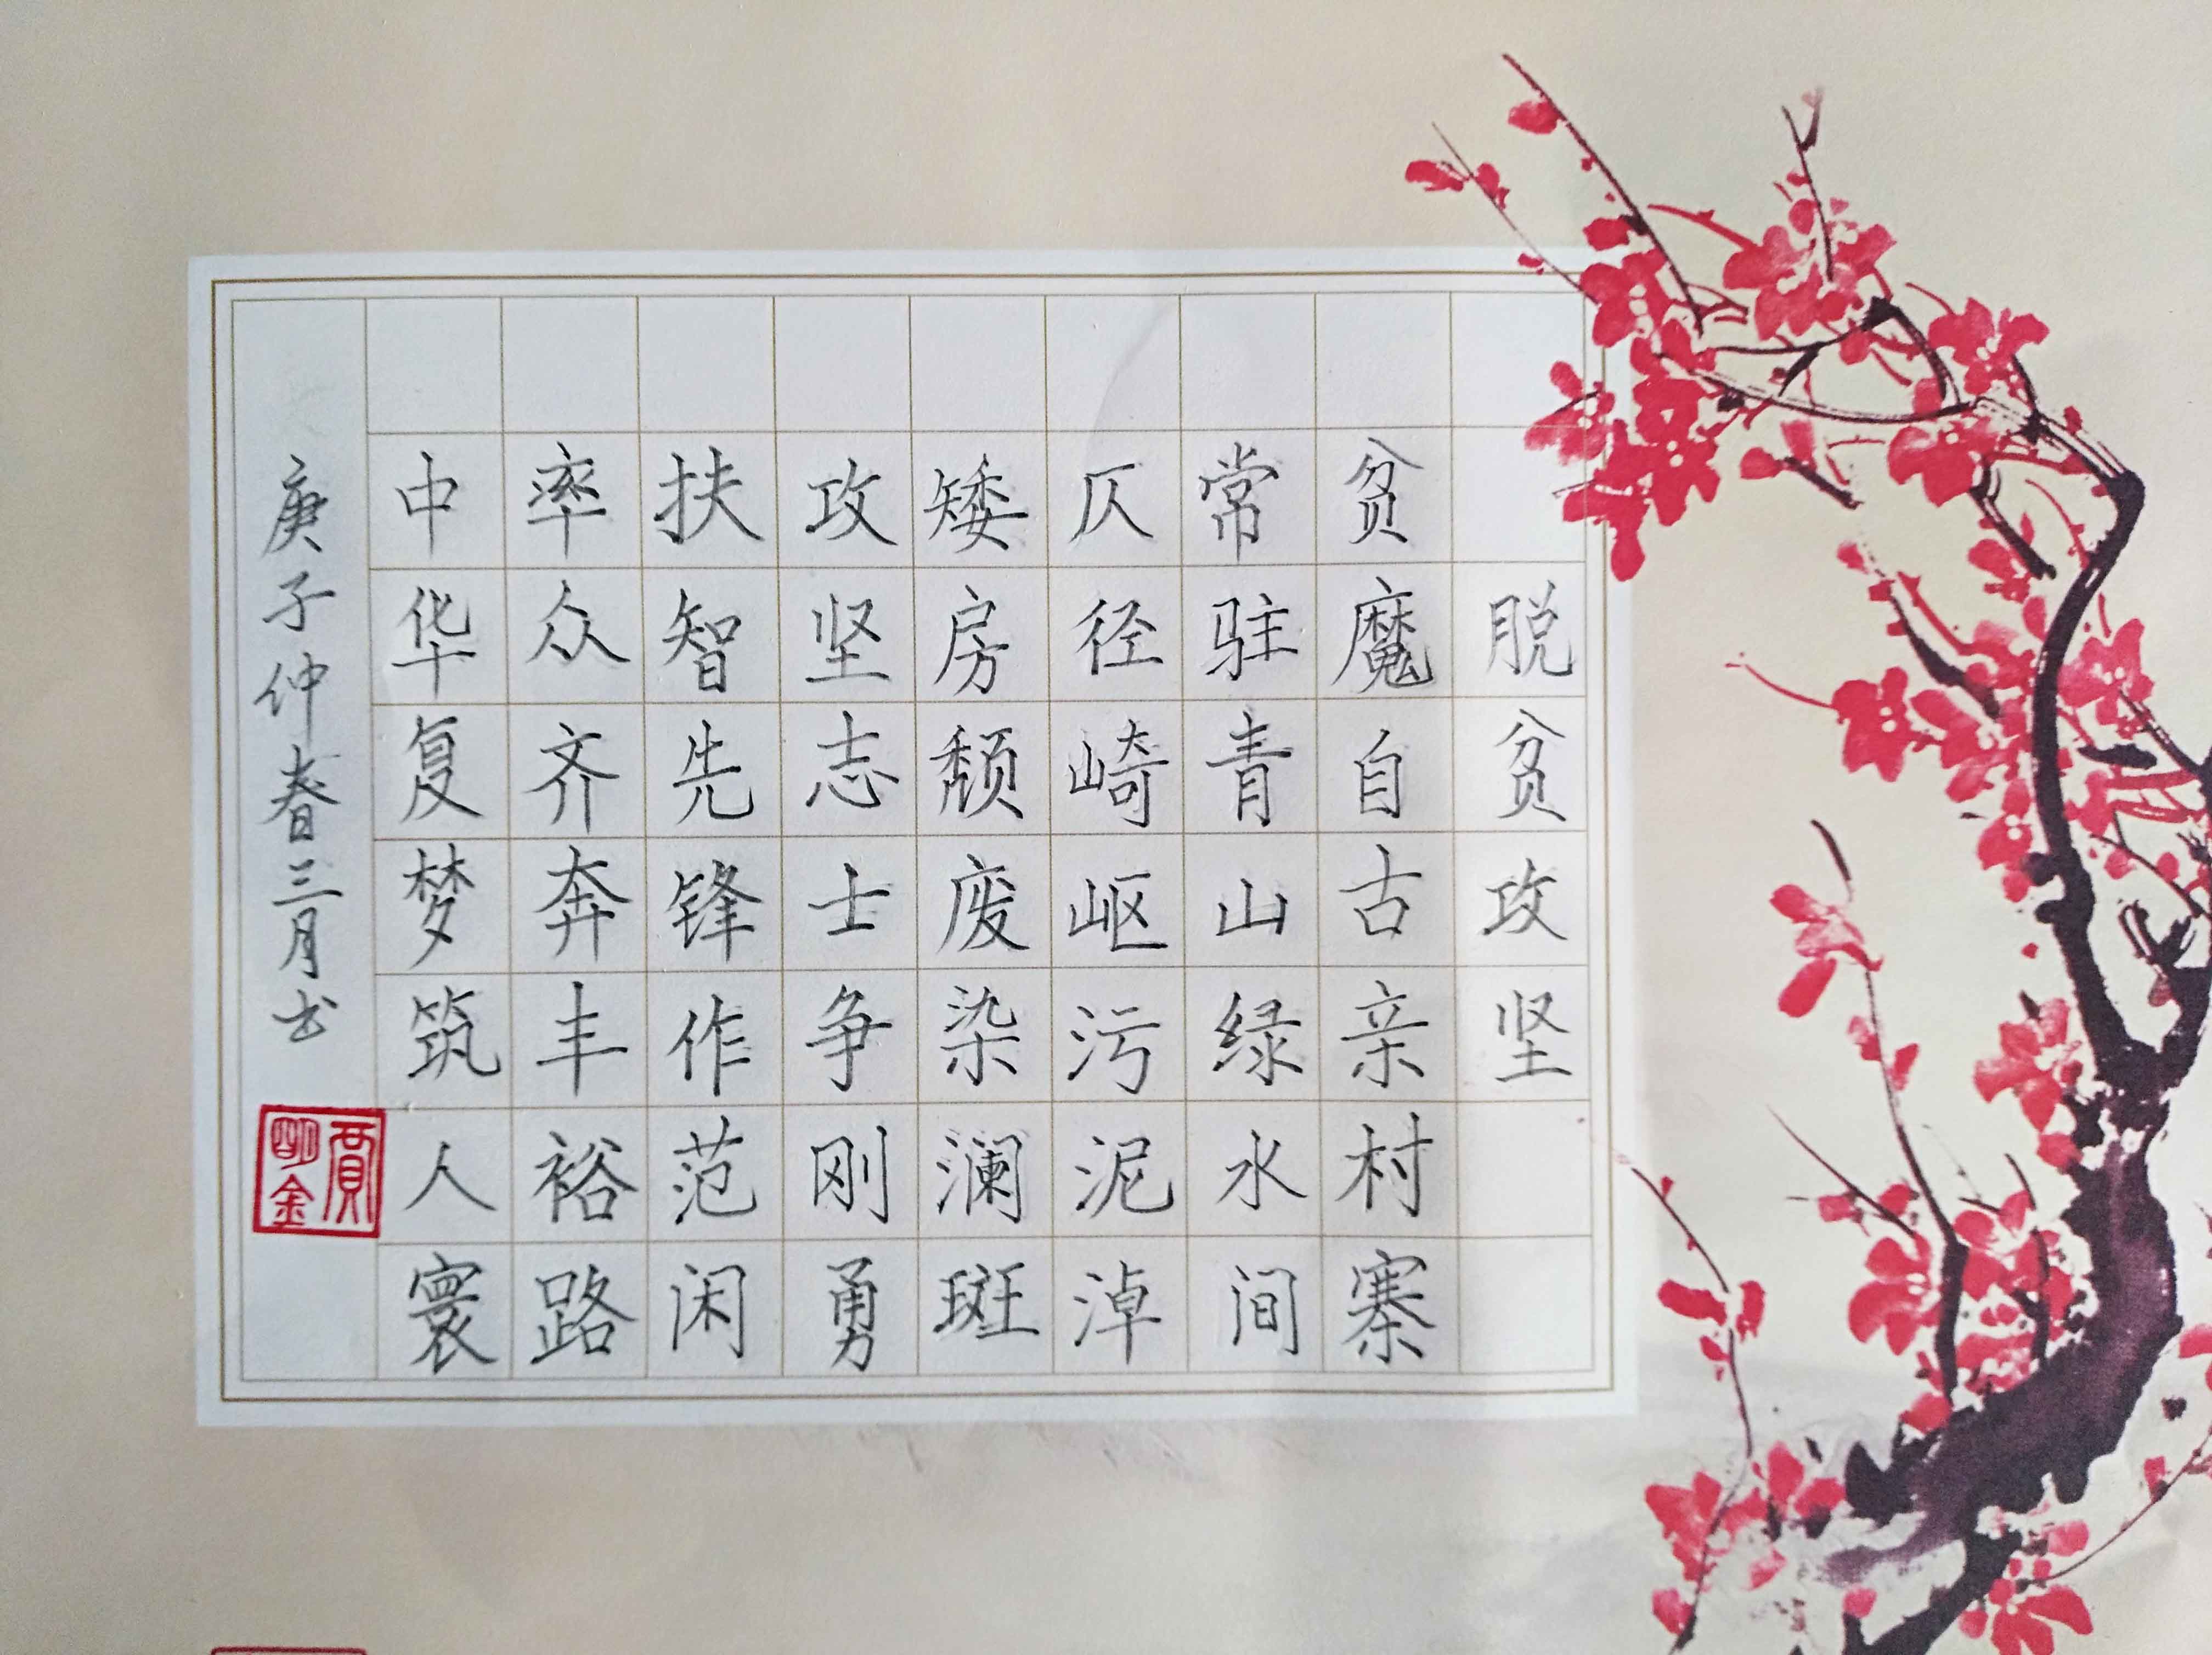 脱贫攻坚
贫魔自古亲村寨
常驻青山绿水间
仄径崎岖污泥淖
矮房颓废染澜斑
攻坚志士争刚勇
扶智先锋作范闲
率众齐奔丰裕路
中华复梦筑人寰
庚子仲春三月书
賈明金